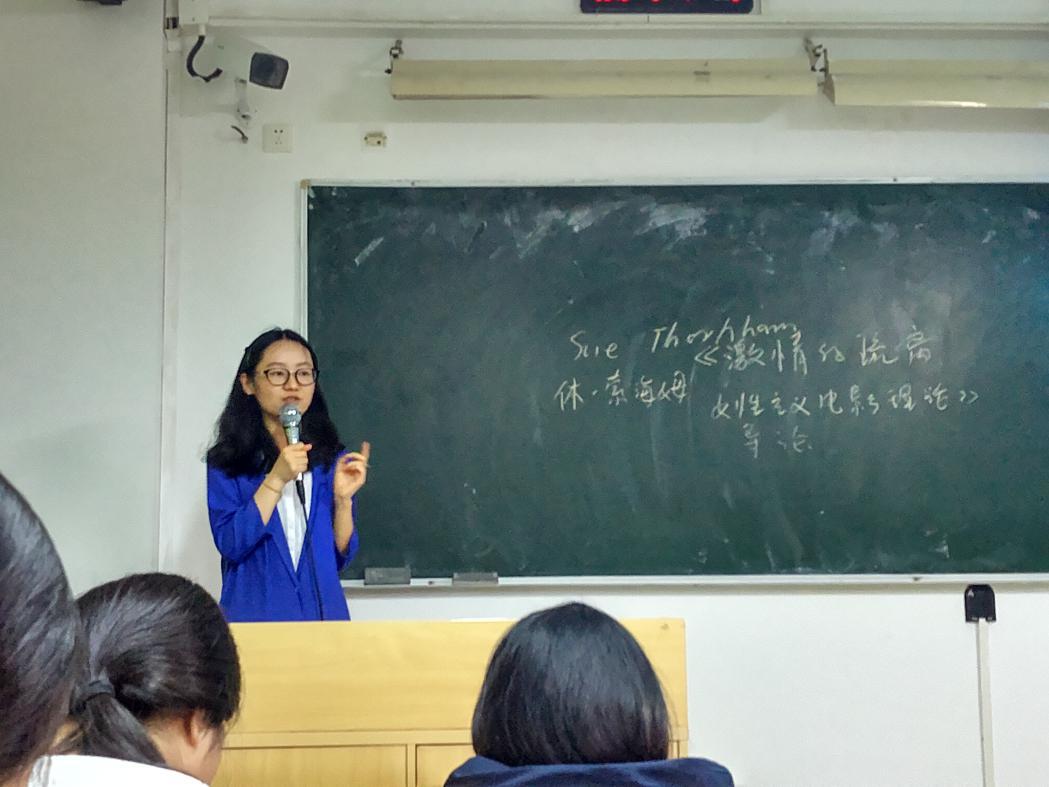 Sue Thornham
《激情的疏离
休·索海姆 女性主义电影理论》
导论